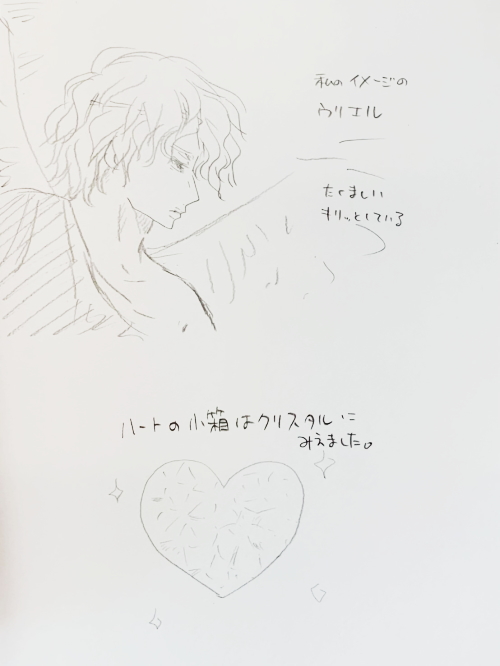 私のイメージの
ウリエル
たくましい
キリッとしている
ハートの小箱はクリスタルに
みえました。